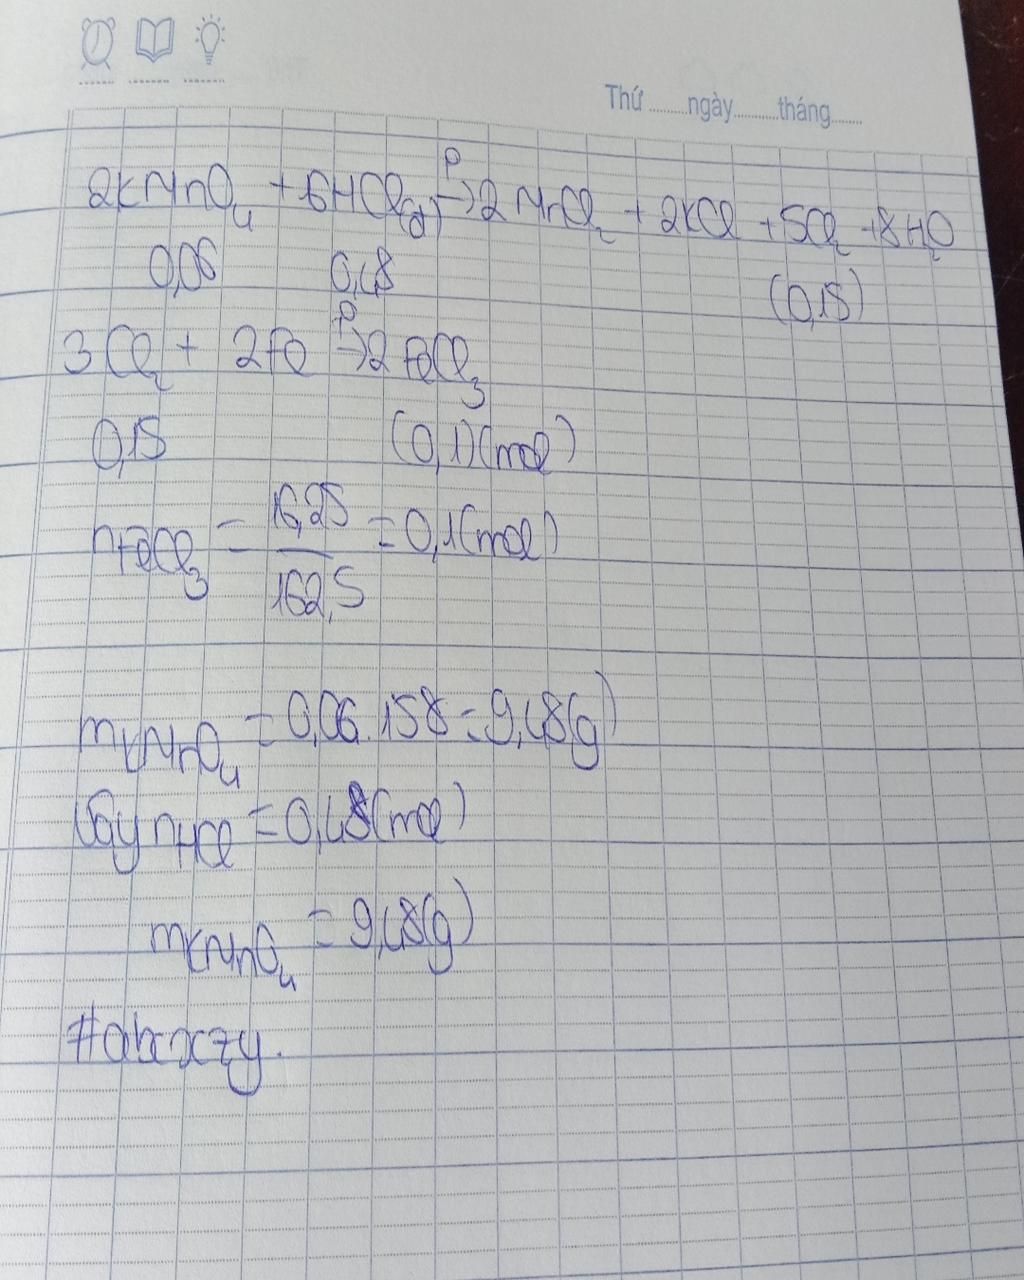 Thứ ........ngày..........tháng.......
2KMnO₄ + 16HCl(đ) →t° 2MnCl₂ + 2KCl + 5Cl₂ + 8H₂O
0,06 0,48 (0,15)
3Cl₂ + 2Fe →t° 2FeCl₃
0,15 (0,1)(mol)
nFeCl₃ = 16,25/162,5 = 0,1(mol)
mKMnO₄ = 0,06.158 = 9,48(g)
Vậy nHCl = 0,48(mol)
mKMnO₄ = 9,48(g)
#abcxzy.